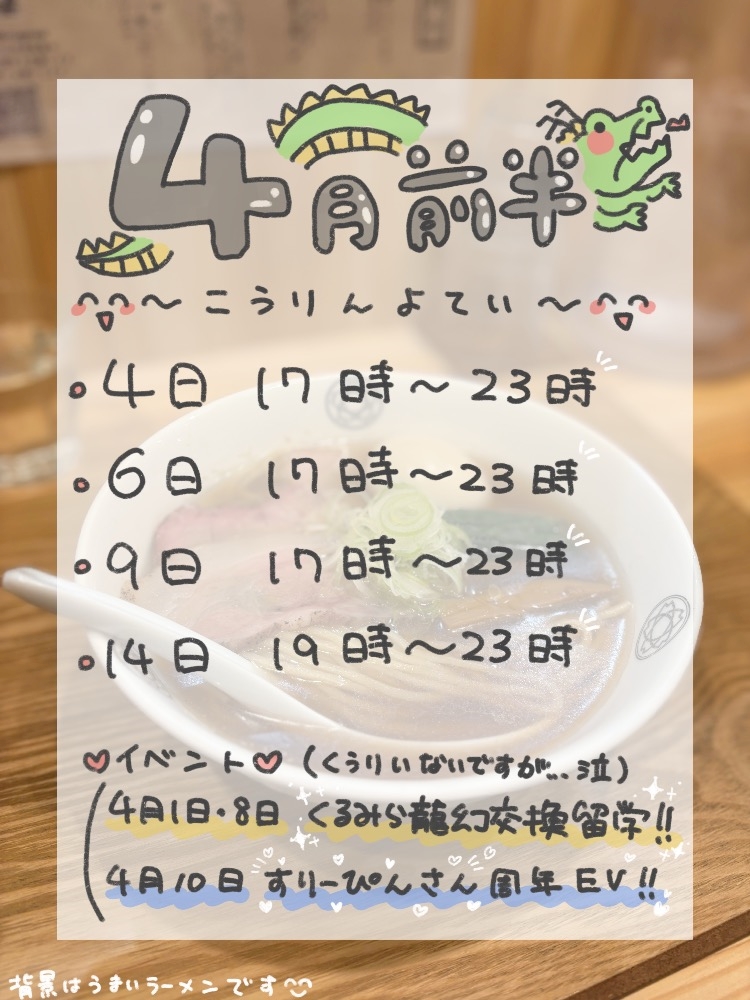 4月前半
〜こうりんよてい〜
・4日 17時〜23時
・6日 17時〜23時
・9日 17時〜23時
・14日 19時〜23時
♡イベント♡(くぅりぃないですが...泣)
4月1日・8日 くるみら龍幻交換留学!!
4月10日 すりーぴんさん周年EV!!
背景はうまいラーメンです